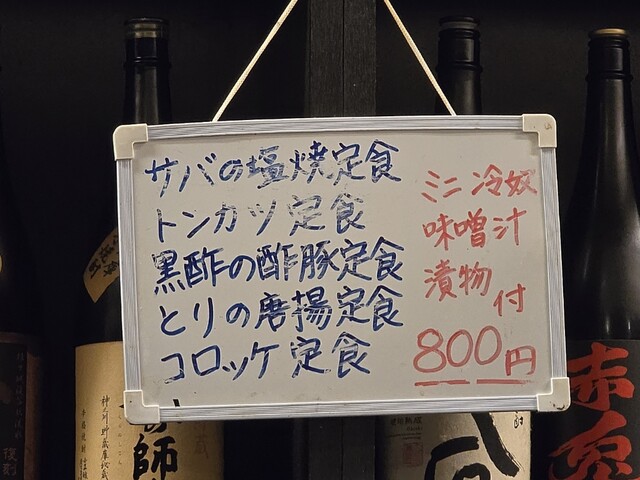 サバの塩焼定食
トンカツ定食
黒酢の酢豚定食
とりの唐揚定食
コロッケ定食
ミニ冷奴
味噌汁
漬物
付
800円
師
赤兎